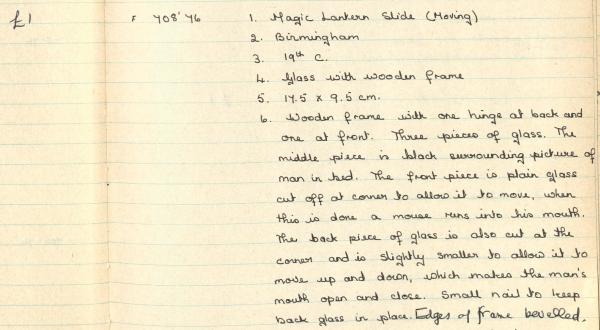 £1 F 408'76 1. Magic Lantern Slide (Moving)
2. Birmingham
3. 19th C.
4. Glass with wooden frame
5. 17.5 x 9.5 cm.
6. Wooden frame with one hinge at back and
one at front. Three pieces of glass. The
middle piece is black surrounding picture of
man in bed. The front piece is plain glass
cut off at corner to allow it to move, when
this is done a mouse runs into his mouth.
The back piece of glass is also cut at the
corner and is slightly smaller to allow it to
move up and down, which makes the man's
mouth open and close. Small nail to keep
back glass in place. Edges of frame bevelled.